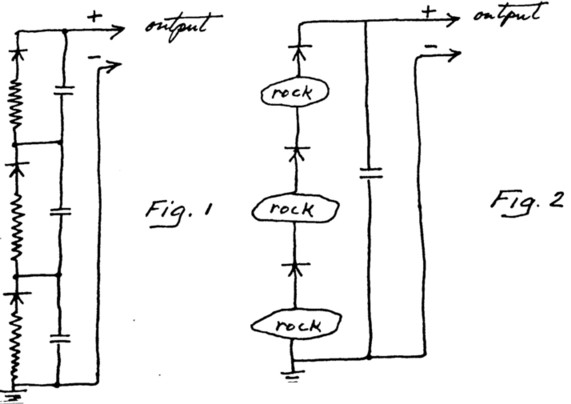 + output
-
Fig. 1
+ output
-
rock
rock
rock
Fig. 2